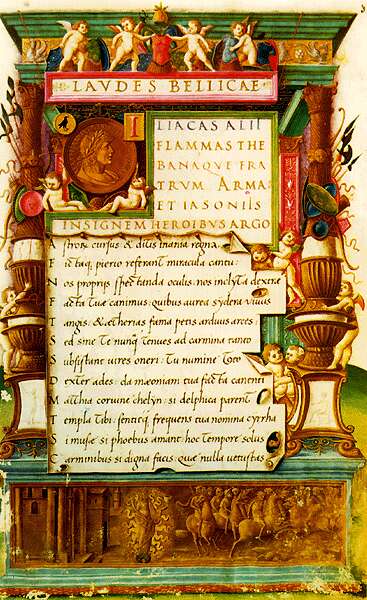 LAVDES BELLICAE
ILIACAS ALII
FLAMMAS THE
BANAQVE FRA
TRVM ARMA
ET IASONIIS
INSIGNEM HEROIBVS ARGO
Astrorū cursus & ditis inania regna
Fictaq; pierio referant miracula cantu:
Nos proprijs spectanda oculis: nos inclyta dextrae
Facta tuae canimus: quibus aurea sydera viuus
Tangis: & aetherias fama petis arduus arces:
Sed sine Te nunq̄ tenues ad carmina tanto
Subsistant uires oneri: Tu numine toto
Dexter ades: da maeoniam tua facta canenti
Matthia coruine chelyn: si delphica parent
Templa Tibi: sentitq; frequens tua nomina cyrrha
Si musae si phoebus amant: hoc tempore solus
Carminibus si digna facis: quae nulla uetustas